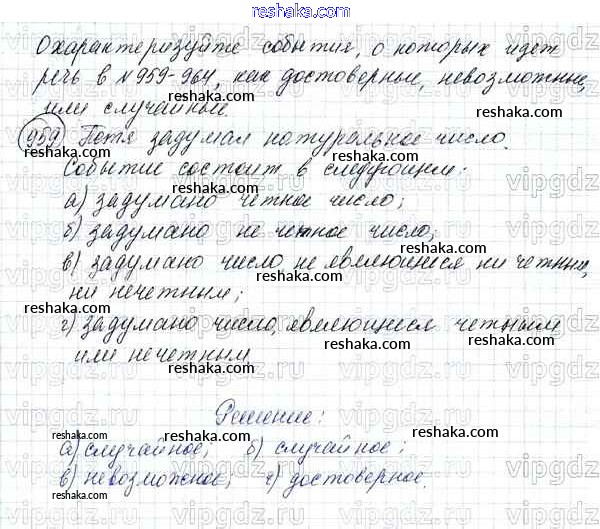 reshaka.com
Охарактеризуйте события, о которых идет
речь в №959-964, как достоверные, невозможные,
или случайные.
959 Петя задумал натуральное число.
Событие состоит в следующем:
а) задумано четное число;
б) задумано не четное число;
в) задумано число, не являющиеся ни четным,
ни нечетным;
г) задумано число, являющиеся четным
или нечетным
Решение:
а) случайное; б) случайное;
в) невозможное; г) достоверное.